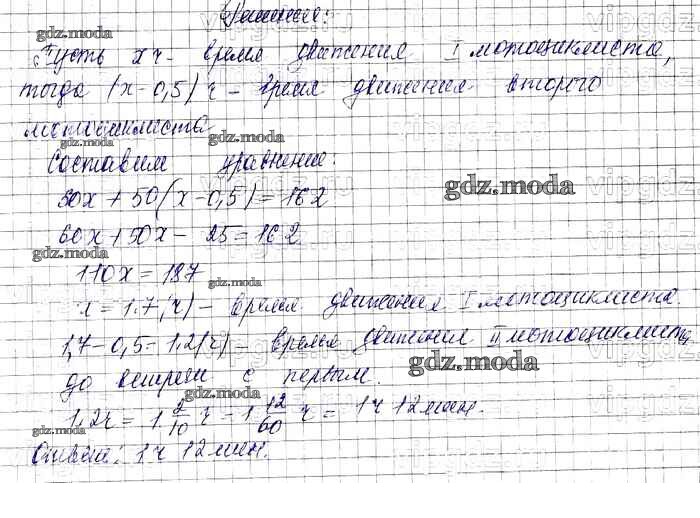 Решение:
Пусть x ч - время движения I мотоциклиста,
тогда (x-0,5) ч - время движения второго
мотоциклиста
Составим уравнение:
60x + 50(x-0,5) = 162
60x + 50x - 25 = 162
110x = 187
x = 1,7 (ч) - время движения I мотоциклиста.
1,7 - 0,5 = 1,2 (ч) - время движения II мотоциклиста
до встречи с первым.
1,2ч = 1 2/10 ч = 1 12/60 ч = 1ч 12мин.
Ответ: 1ч 12мин.
gdz.moda
gdz.moda
gdz.moda
gdz.moda
gdz.moda
gdz.moda
gdz.moda
gdz.moda
gdz.moda
vipgdz.ru
vipgdz
vipgdz.ru
vipgdz
vipgdz.ru
vipgdz